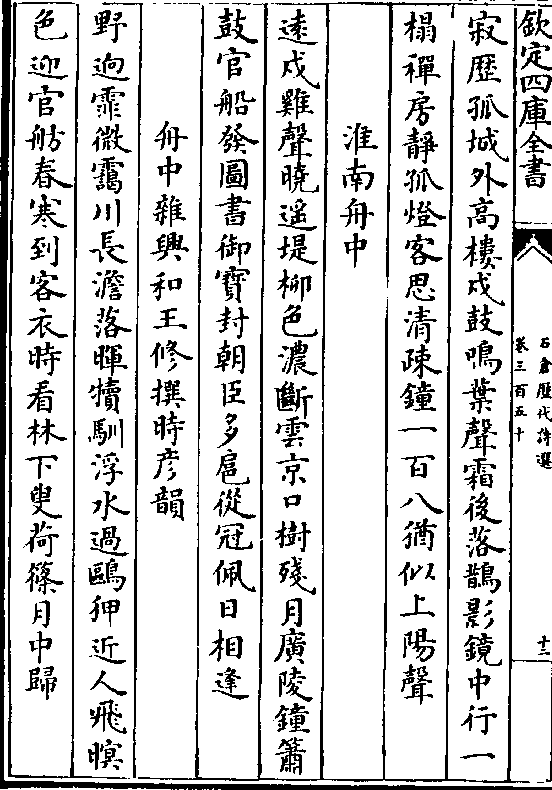 欽定四庫全書
石倉歷代詩選
卷三百五十
十二
寂歴孤城外高樓戍鼓鳴葉聲霜後落鵲影鏡中行一
榻禪房靜孤燈客思清疎鐘一百八猶似上陽聲
淮南舟中
逺戍雞聲曉遥堤柳色濃斷雲京口樹殘月廣陵鐘簫
鼓官船發圖書御寶封朝臣多扈從冠佩日相逢
舟中雜興和王修撰時彦韻
野逈霏微靄川長澹落暉犢馴浮水過鷗狎近人飛暝
色迎官舫春寒到客衣時看林下叟荷篠月中歸